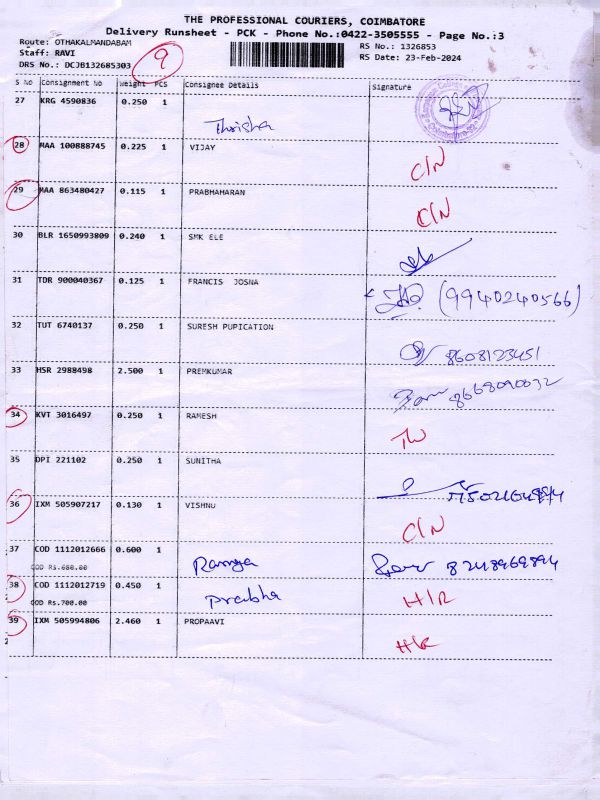 THE PROFESSIONAL COURIERS, COIMBATORE
Delivery Runsheet - PCK - Phone No.:0422-3505555 - Page No.:3
Route: OTHAKALMANDABAM
RS No.: 1326853
Staff: RAVI
RS Date: 23-Feb-2024
DRS No.: DCJB132685303
9
S No Consignment No Weight PCS Consignee Details Signature
27 KRG 4590836 0.250 1 Thrisha
28 MAA 100888745 0.225 1 VIJAY C/N
29 MAA 863480427 0.115 1 PRABHAHARAN C/N
30 BLR 1650993809 0.240 1 SMK ELE
31 TDR 900040367 0.125 1 FRANCIS JOSNA (9940240566)
32 TUT 6740137 0.250 1 SURESH PUPICATION 8608123451
33 HSR 2988498 2.500 1 PREMKUMAR 8668090032
34 KVT 3016497 0.250 1 RAMESH
35 DPI 221102 0.250 1 SUNITHA
36 IXM 505907217 0.130 1 VISHNU C/N
37 COD 1112012666 0.600 1 Ramya 8248969894
COD Rs.680.00
38 COD 1112012719 0.450 1 Prabha H/R
COD Rs.700.00
39 IXM 505994806 2.460 1 PROPAAVI